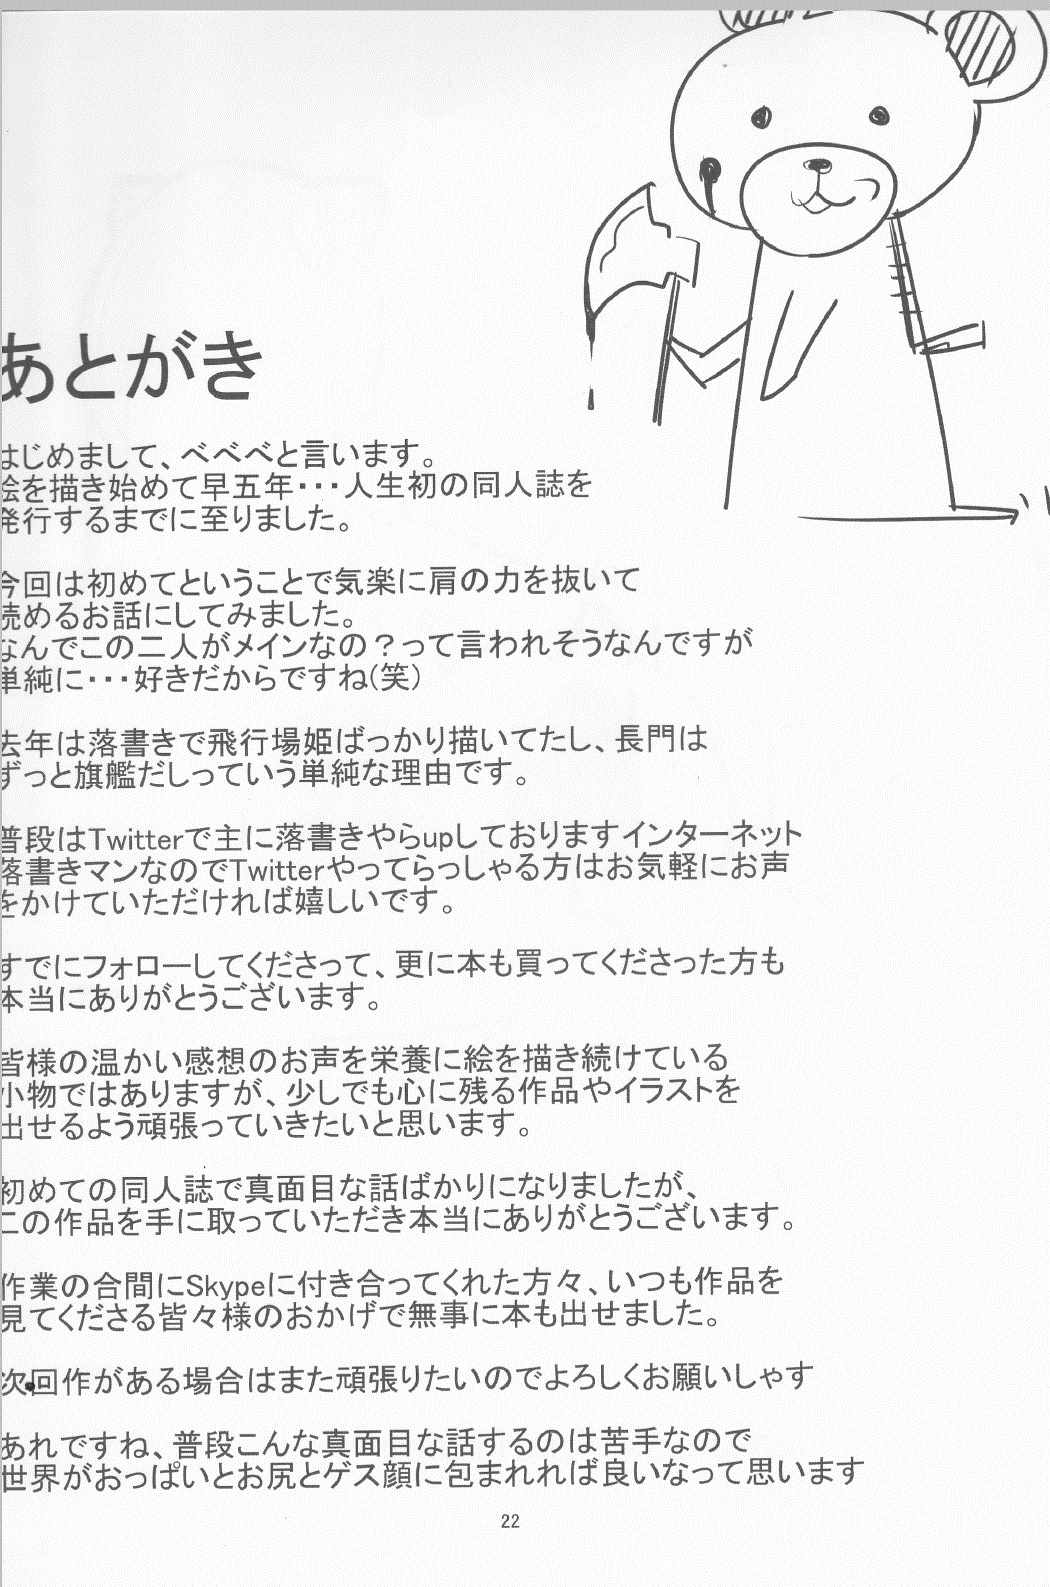 あとがき
はじめまして、べべべと言います。
絵を描き始めて早五年・・・人生初の同人誌を
発行するまでに至りました。
今回は初めてということで気楽に肩の力を抜いて
読めるお話にしてみました。
なんでこの二人がメインなの？って言われそうなんですが
単純に・・・好きだからですね(笑)
去年は落書きで飛行場姫ばっかり描いてたし、長門は
ずっと旗艦だしっていう単純な理由です。
普段はTwitterで主に落書きやらupしておりますインターネット
落書きマンなのでTwitterやってらっしゃる方はお気軽にお声
をかけていただければ嬉しいです。
すでにフォローしてくださって、更に本も買ってくださった方も
本当にありがとうございます。
皆様の温かい感想のお声を栄養に絵を描き続けている
小物ではありますが、少しでも心に残る作品やイラストを
出せるよう頑張っていきたいと思います。
初めての同人誌で真面目な話ばかりになりましたが、
この作品を手に取っていただき本当にありがとうございます。
作業の合間にSkypeに付き合ってくれた方々、いつも作品を
見てくださる皆々様のおかげで無事に本も出せました。
次回作がある場合はまた頑張りたいのでよろしくお願いしゃす
あれですね、普段こんな真面目な話するのは苦手なので
世界がおっぱいとお尻とゲス顔に包まれれば良いなって思います
22